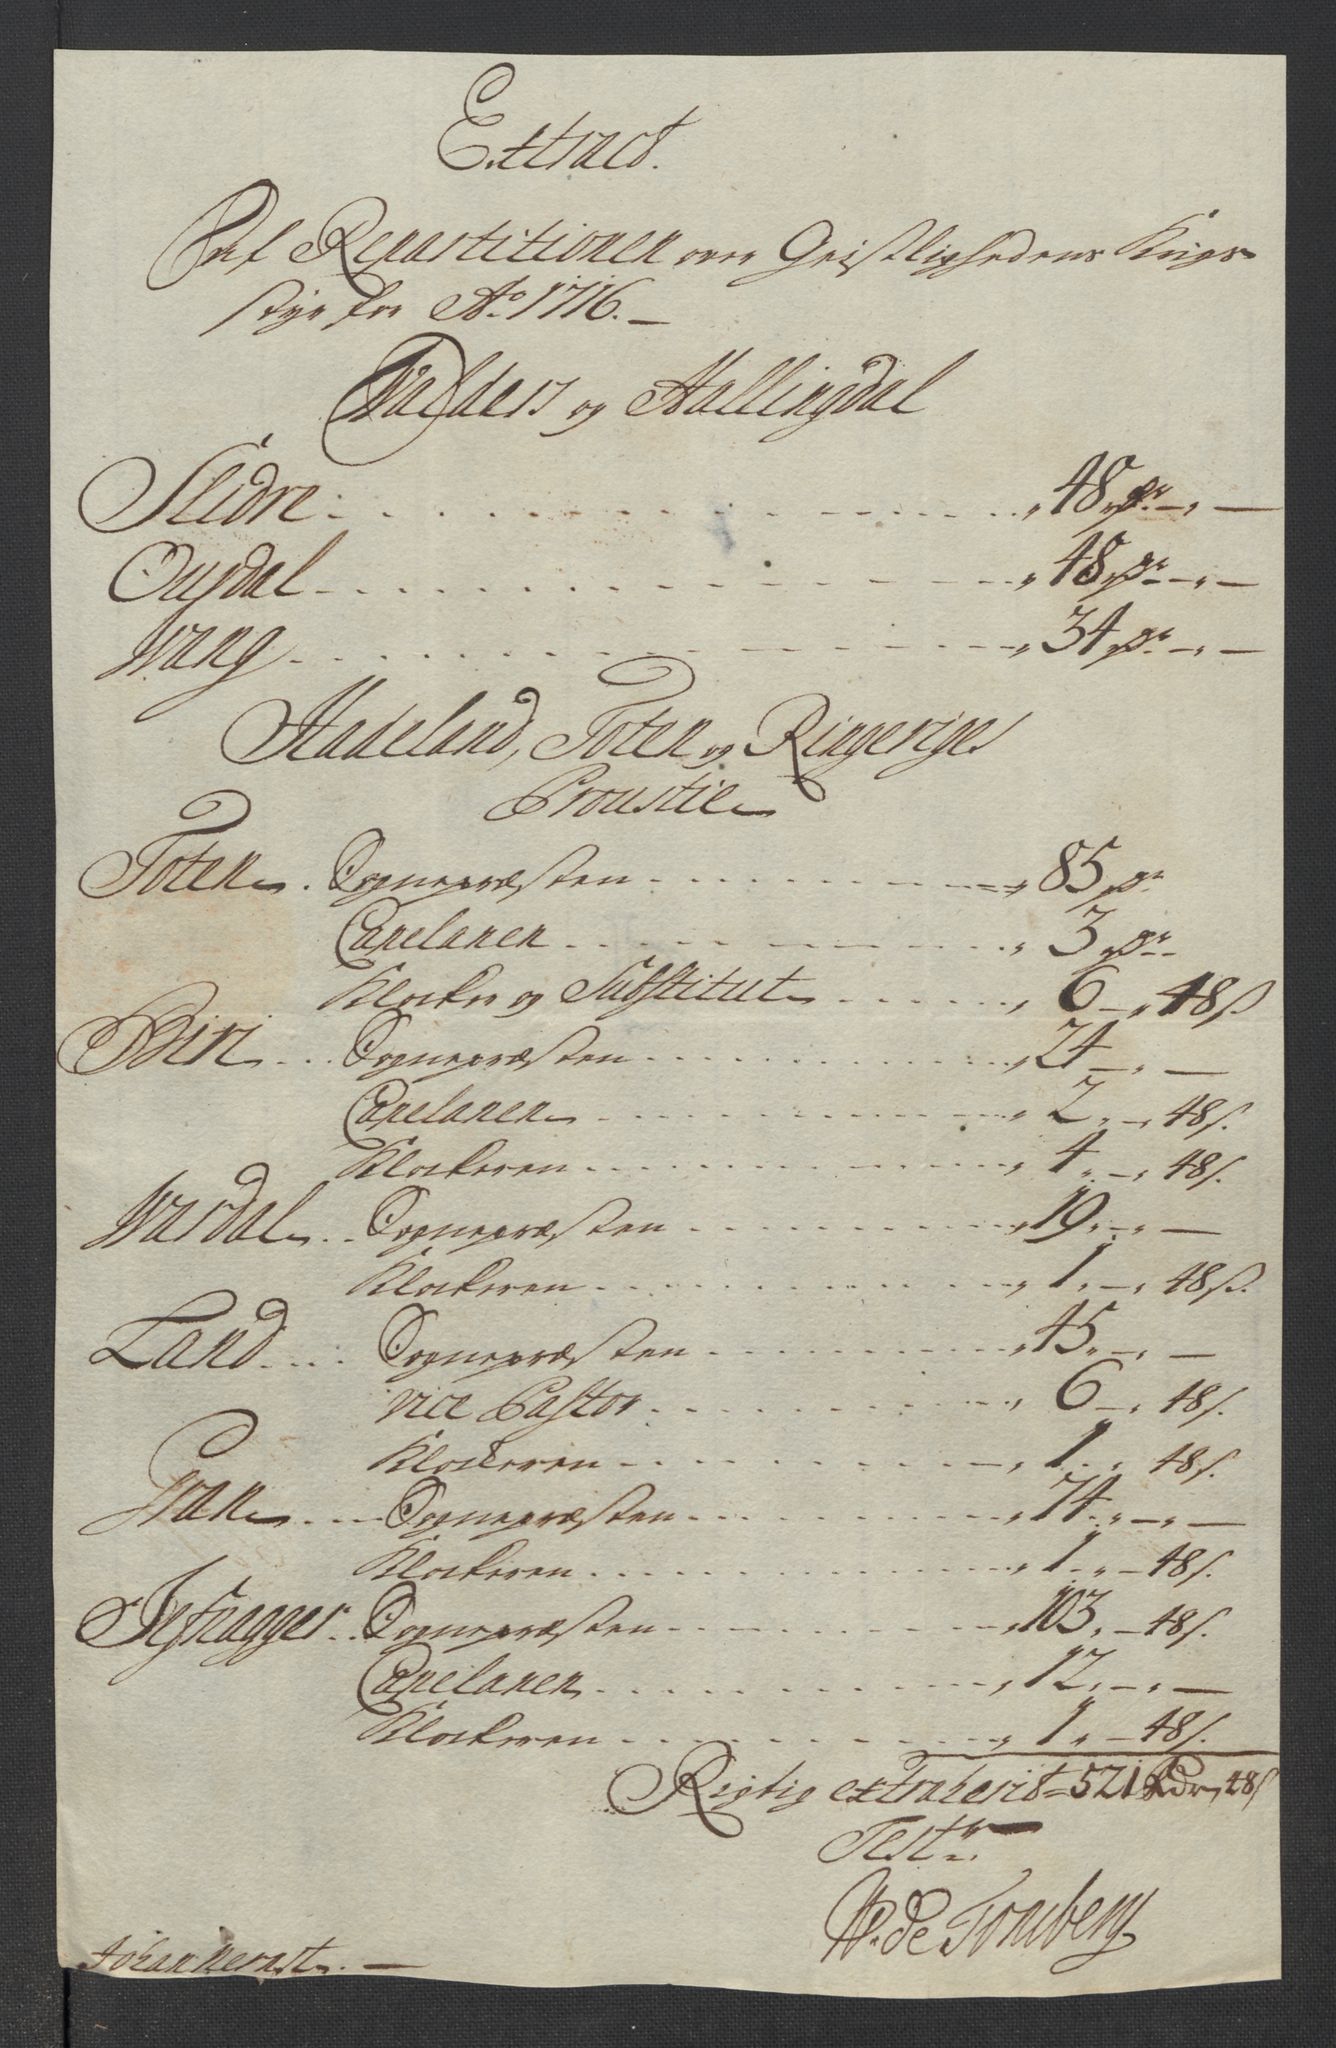 Extract.
Aaf Repartitionen over Geistlighedens Krigs
styr for Ao. 1716. —
Walders og Hallingdal
Slidre . . . . . . . . 48 — „ —
Ourdal . . . . . . . . 48 — „ —
Wang . . . . . . . . 34 — „ —
Hadeland, Toten og Ringeriges
Proustie
Toten . Sognepræsten . . . . . . 85
Capelanen . . . . . . 3
Klocker og Substitut . . . . . . 6 — „ 48 s.
Biri . . . Sognepræsten . . . . . . 24 — „ —
Capelanen . . . . . . 2 „ — „ 48 s.
Klockeren . . . . . . 4 „ — „ 48 s.
Wardal . . Sognepræsten . . . . . . 19 „ — „ —
Klockeren . . . . . . 1 „ — „ 48 s.
Land . . . . Sognepræsten . . . . . . 45 „ — „ —
vice Pastor . . . . . . 6 — „ 48 s.
Klockeren . . . . . . 1 „ „ 48 s.
Gran . . . Sognepræsten . . . . . . 74 „ — „ —
Klockeren . . . . . . 1 „ — 48 s.
Jefnagger . . Sognepræsten . . . . . . 103 „ — 48 s.
Capelanen . . . . . . 12 „ — „ —
Klockeren . . . . . . 1 „ — 48 s.
Rigtig extraherit 521 Rdr 48 s
Test:
de Tonsberg